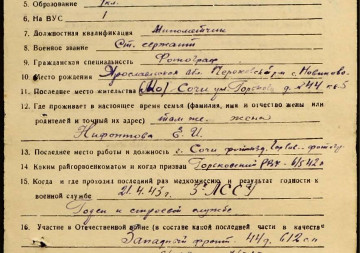 5. Образование 7кл.
6. На ВУС 1
7. Должностная квалификация Минометчик
8. Военное звание Ст. сержант
9. Гражданская специальность Фотограф
10. Место рождения Ярославская обл. с. Новиково
11. Последнее место жительства г. Сочи ул. Горького д. №44 кв. 5
12. Где проживает в настоящее время семья (фамилия, имя и отчество жены или
родителей и точный их адрес) там же жена
Нифонтова Е. И.
13. Последнее место работы и должность г. Сочи
14. Каким райгорвоенкоматом и когда призван РВК
15. Когда и где проходил последний раз медкомиссию и результат годности к
военной службе 21.4.45 г. 3-ЛССУ
Годен к строевой службе
16. Участие в Отечественной войне (в составе какой последней части и в качестве
Западный фронт 44д. 612 сп